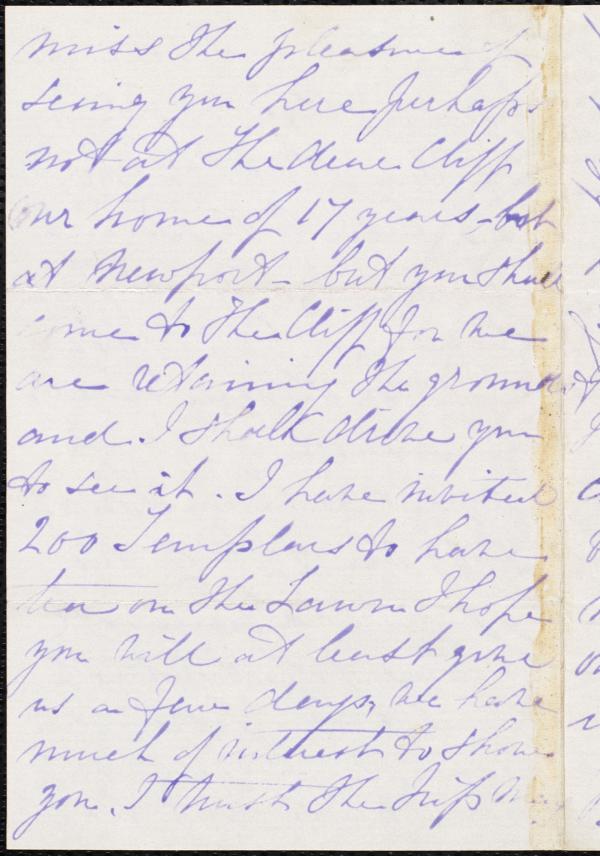 miss the pleasure of
seeing you here perhaps
not at the dear Cliff
our home of 17 years - but
at Newport - but you shall
come to the Cliff for we
are retaining the grounds
and I shall drive you
to see it. I have invited
200 Templars to have
tea on the Lawn I hope
you will at least give
us a few days, we have
much of interest to show
you. I trust the trip may